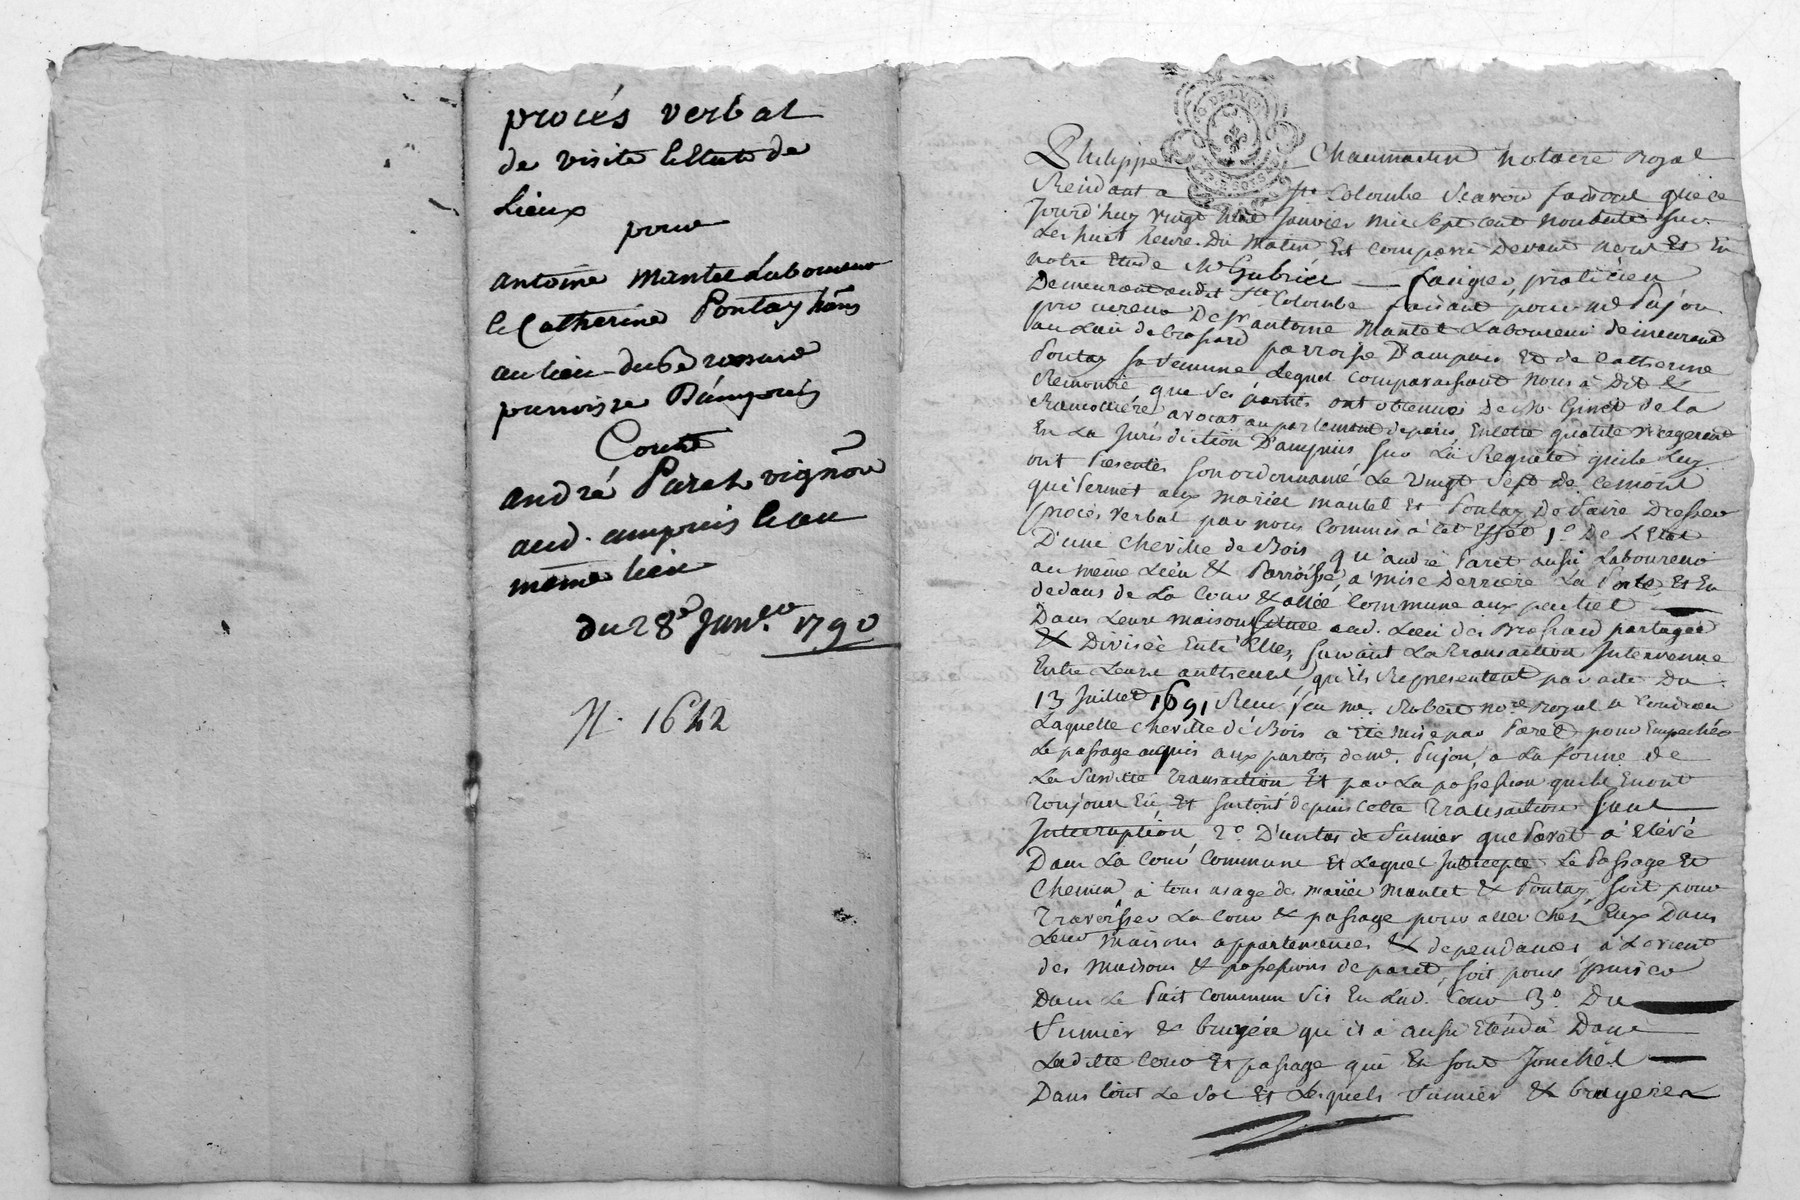 procés verbal
de visite & État de
Lieux
pour
antoine Mantel Laboureur
& Catherine Pontay
au lieu du Brossard
parroisse D'ampuis
Contre
andré Paret vigñon
aud. ampuis & au
même lieu
du 28e Janver 1790
N. 1622
GEN DE LYON
Philippe Chaumartin notaire Royal
Residant a Ste Colombe Scavoir faisons que ce
Jourd'huy vingt huit Janvier mil sept cent nonante sur
Les huit heure Du Matin Est comparu Devant nous Et En
notre Etude Mr Gabriel Laugier, praticien
Demeurant audit Ste Colombe faisant pour me Pujon
procureur De Sr antoine Mantel Laboureur demeurant
au Lieu de brossard parroisse D'ampuis Et de Catherine
Pontay sa femme Lequel comparaissant nous à Dit &
Remontré que Ses parties ont obtenues De Mr. Ginet de la
avocat au parlement de paris En cette qualité
En La Jurisdiction D'ampuis sur La Requête qu'ils Luy
ont Presentés son ordonnance Le Vingt Sept de Cemois
qui Permet aux mariés mantel Et Pontay De faire Dresser
procès verbal par nous Commis à cet Effet 1o De L'Etat
D'une cheville de Bois qu'andré Paret aussi Laboureur
au même Lieu & Parroisse, a mise Derriere La Porte, Et En
dedans de La Cour & allée Commune aux parties
Dans Leurs maisons Située aud. Lieu de Brossard partagée
& Divisée Entr'Elles, suivant La transaction Intervenue
Entre Leurs autheurs, qu'ils Representent par acte Du
13 Juillet 1691 Reçu feu me. Robert nore Royal a Condrieu
Laquelle cheville dé Bois a Eté mise par Paret pour Empecher
Le passage acquis aux parties de me. Pujon, a La forme de
La Susditte transaction Et par La possession qu'ils En ont
toujours Eû Et surtout depuis cette transaction sans
Interruption 2o D'un tas de fumier que Paret à Elévé
Dans La Cour Commune Et Lequel Intercepte Le Passage Et
Chemin à tous usage des mariés Mantel & Pontay, soit pour
Traverser La Cour & passage pour aller chés Eux Dans
Leurs maisons appartenances & dependances, à L'orient
des maisons & possessions de paret, soit pour puiser
Dans Le Puit commun Sis En Lad. Cour 3o. Du
fumier & bruyére qu'il à aussi Etendu Dans
Laditte Cour Et passage qui En sont Jonchés
Dans tout Le Sol Et Lesquels fumier & bruyeres